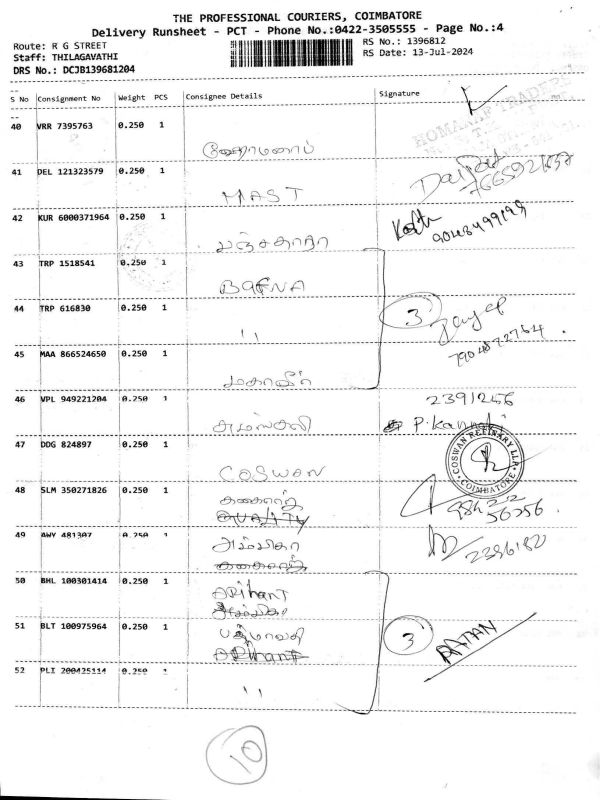 THE PROFESSIONAL COURIERS, COIMBATORE
Delivery Runsheet - PCT - Phone No.:0422-3505555 - Page No.:4
Route: R G STREET
RS No.: 1396812
Staff: THILAGAVATHI
RS Date: 13-Jul-2024
DRS No.: DCJB139681204
S No Consignment No Weight PCS Consignee Details Signature
HOMANAF TRADERS
40 VRR 7395763 0.250 1
41 DEL 121323579 0.250 1
MAST
42 KUR 6000371964 0.250 1
43 TRP 1518541 0.250 1
BAFNA
44 TRP 616830 0.250 1
3
ıı
7904872764
45 MAA 866524650 0.250 1
மகாவீர்
46 VPL 949221204 0.250 1
2391256
P. Kannaki
47 DDG 824897 0.250 1
COSWAN
COSWAN REFINARY LLP
COIMBATORE
48 SLM 350271826 0.250 1
QUALITY
49 AWY 481307 0.250 1
அம்பிகா
50 BHL 100301414 0.250 1
ARihanT
51 BLT 100975964 0.250 1
பத்மாவதி
ARihanT
3
RATAN
52 PLI 200425114 0.250 1
ıı
10